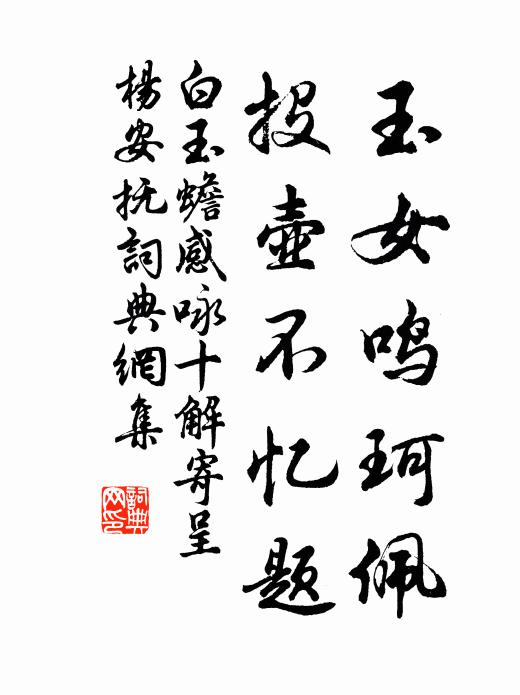 玉女鸣珂佩
投壶不忆题
白玉蟾感咏十解寄呈
杨安抚词典网集
詞典
网印